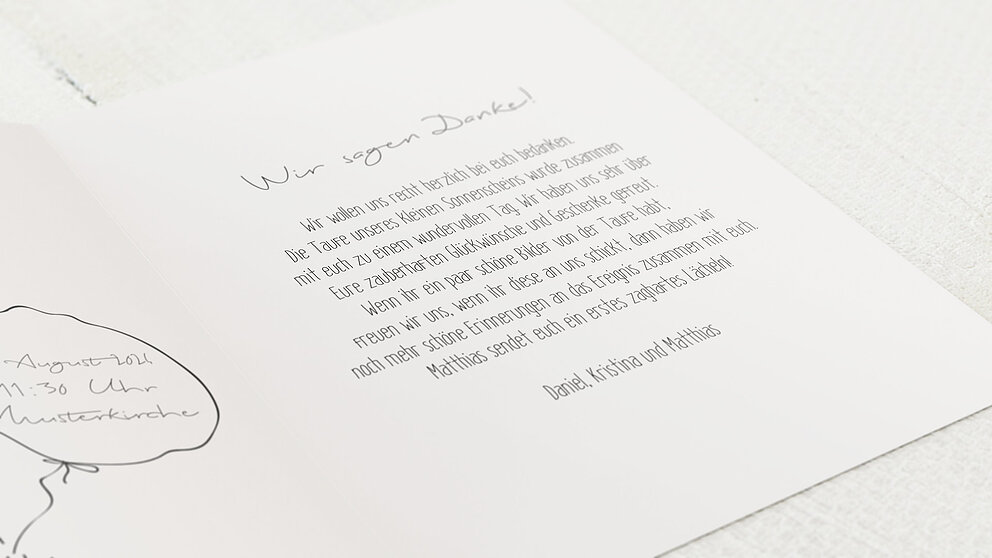 August 2026
11:30 Uhr
Musterkirche
Wir sagen Danke!
Wir wollen uns recht herzlich bei euch bedanken.
Die Taufe unseres kleinen Sonnenscheins wurde zusammen
mit euch zu einem wundervollen Tag. Wir haben uns sehr über
Eure zauberhaften Glückwünsche und Geschenke gefreut.
Wenn ihr ein paar schöne Bilder von der Taufe habt,
freuen wir uns, wenn ihr diese an uns schickt, dann haben wir
noch mehr schöne Erinnerungen an das Ereignis zusammen mit euch.
Matthias sendet euch ein erstes zaghaftes Lächeln!
Daniel, Kristina und Matthias